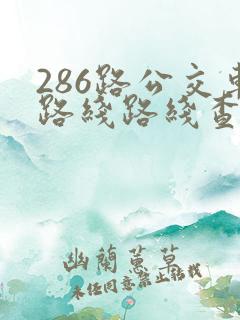 286路公交车
路线路线查
幽蘭蕙草
未经同意禁止转载